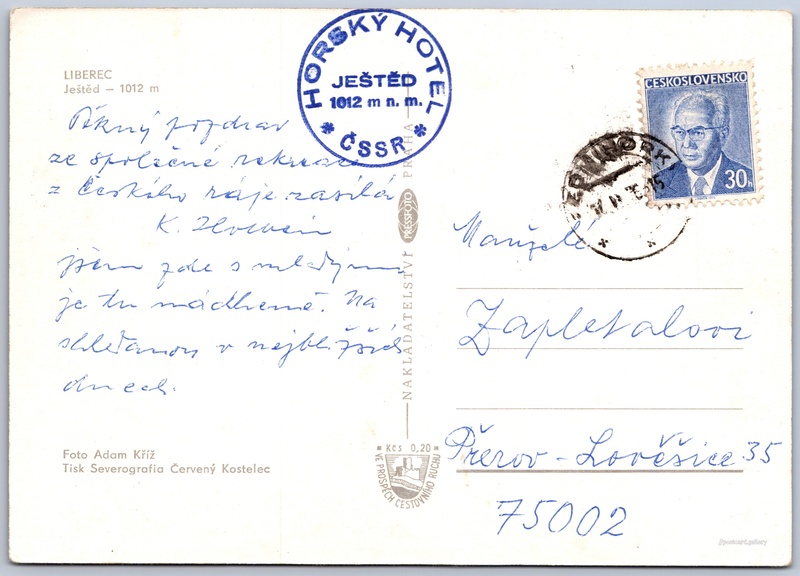 LIBEREC
Ještěd – 1012 m
HORSKÝ HOTEL
JEŠTĚD
1012 m n. m.
* ČSSR *
ČESKOSLOVENSKO
30h
Pěkný pozdrav
ze společné rekreace
z Českého ráje zasílá
K.
jsem zde s mladými
je tu nádherně. Na
shledanou v nejbližších
dnech.
NAKLADATELSTVÍ
PRESSFOTO
PRAHA
Manželé
Zapletalovi
Přerov-Lověšice 35
75002
Foto Adam Kříž
Tisk Severografia Červený Kostelec
Kčs 0,20
VE PROSPĚCH CESTOVNÍHO RUCHU
//postcard.gallery